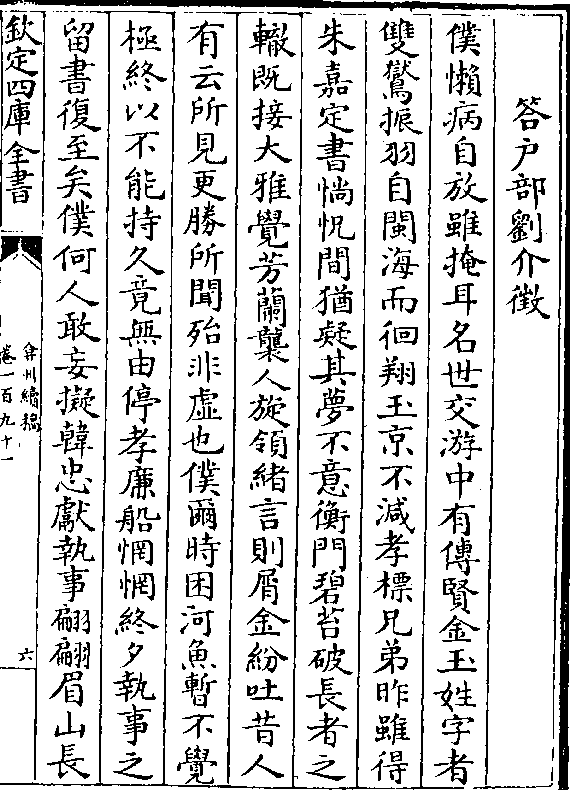 答户部劉介徵
僕懶病自放雖掩耳名世交游中有傳賢金玉姓字者
雙鸑振羽自閩海而徊翔玉京不減孝標兄弟昨雖得
朱嘉定書惝怳間猶疑其夢不意衡門碧苔破長者之
轍既接大雅覺芳蘭襲人旋領緒言則屑金紛吐昔人
有云所見更勝所聞殆非虛也僕爾時困河魚暫不覺
極終以不能持久竟無由停孝廉船惘惘終夕執事之
留書復至矣僕何人敢妄擬韓忠獻執事翩翩眉山長
欽定四庫全書
弇州續稿
卷一百九十一
六